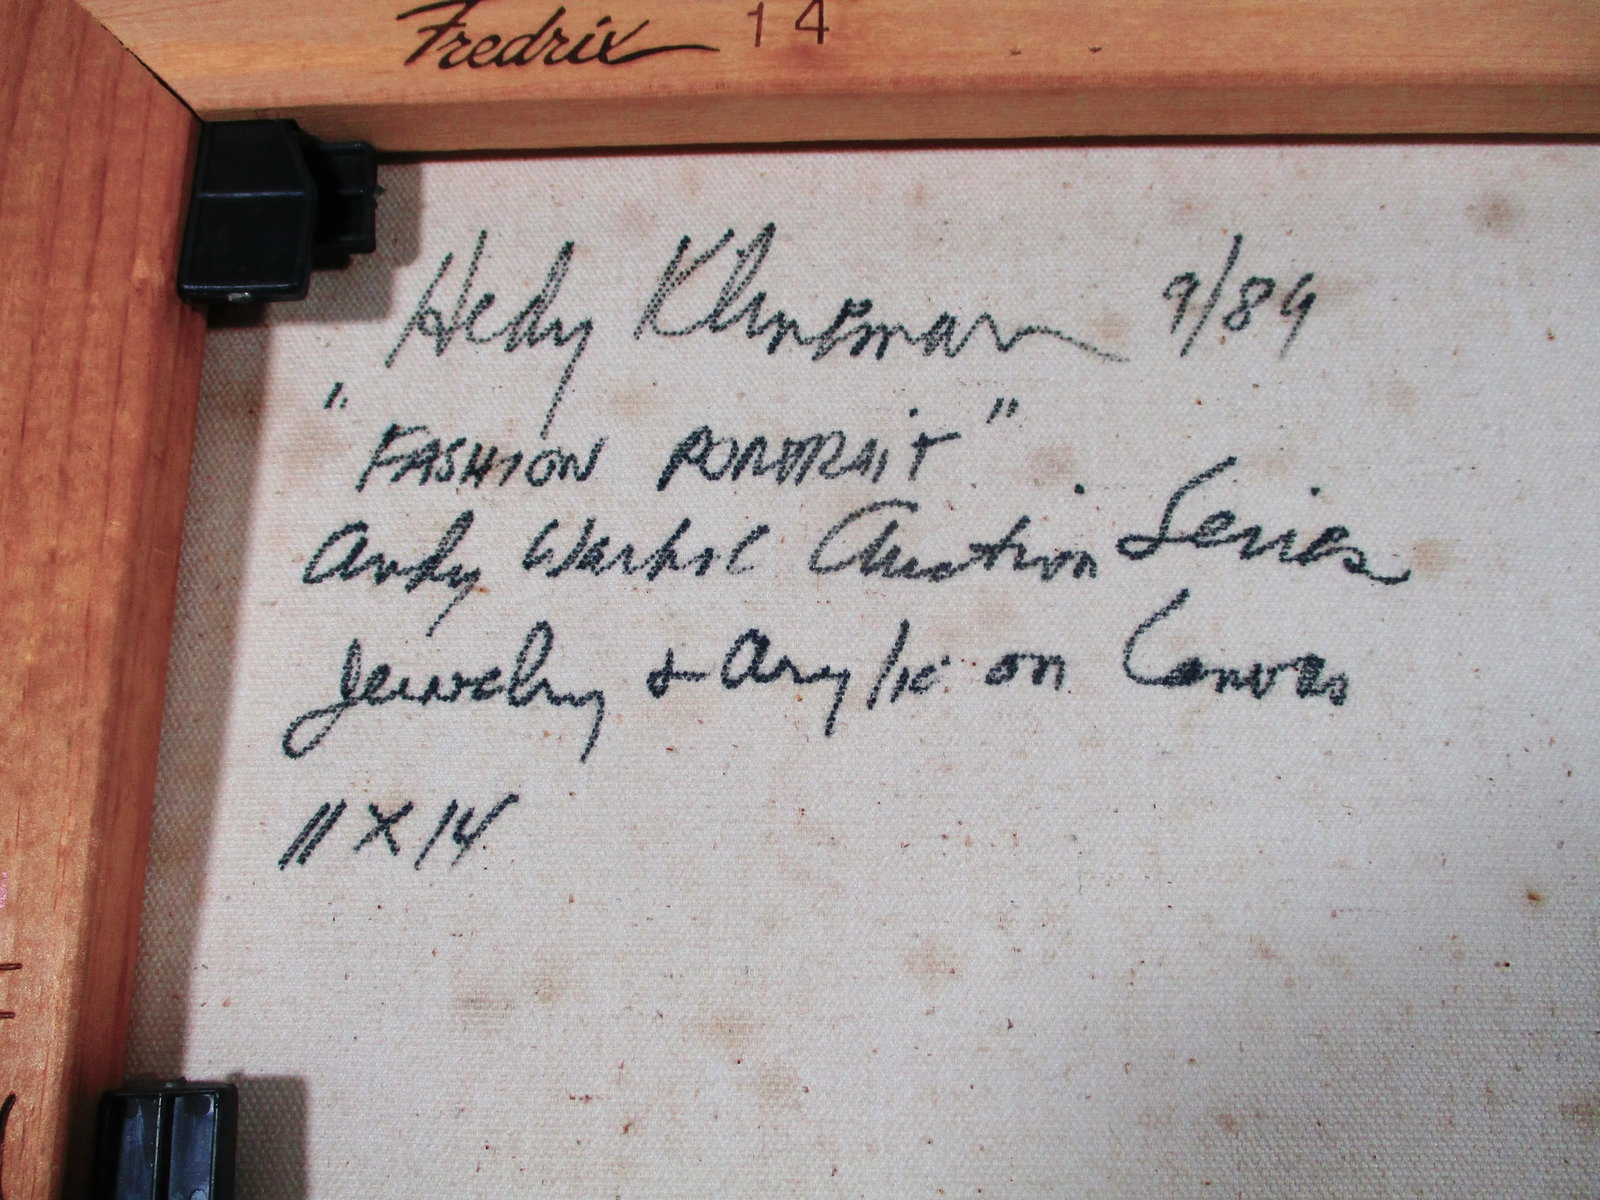 Fredrix 14
Hedy Klineman 9/89
"FASHION PORTRAIT"
Andy Warhol Auction Series
Jewelry & Acrylic on Canvas
11 X 14